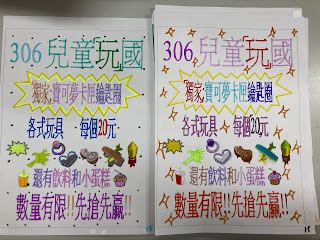 306 兒童「玩」國
獨家寶可夢卡匣鑰匙圈
各式玩具、每個20元
還有飲料和小蛋糕
數量有限!!先搶先贏!!
15
306 兒童「玩」國
「獨家」寶可夢卡匣鑰匙圈
各式玩具、每個20元
還有飲料和小蛋糕
數量有限!!!先搶先贏!!
15